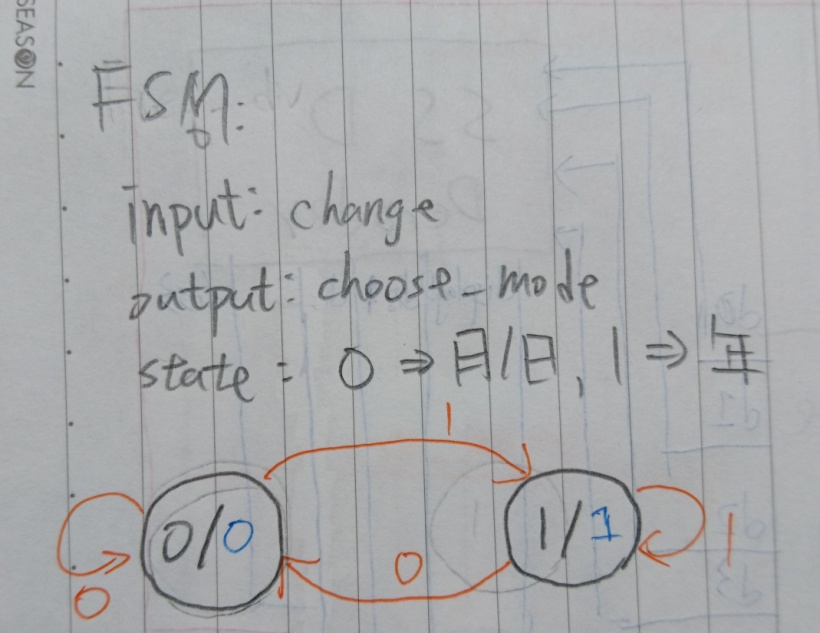 SEASON
FSM:
input: change
output: choose_mode
state: 0 ⇒ 月/日, 1 ⇒ 年
1
0/0
1/1
0
0
1